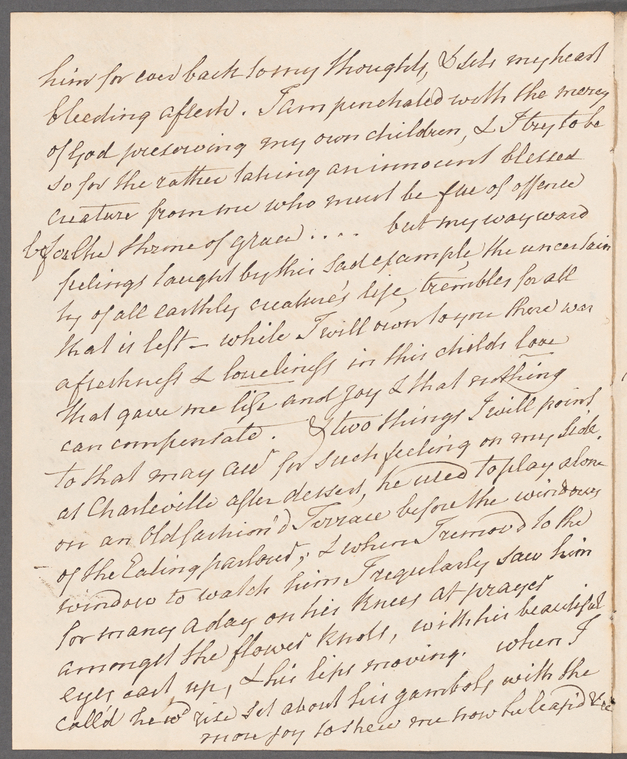 him for ever back to my thoughts, & sets my heart
bleeding afresh. I am penetrated with the mercy
of God preserving my own children, & I try to be
so for the rather taking an innocent blessed
creature from me who must be free of offence
before the throne of grace .... but my wayward
feelings taught by this sad example the uncertain
ty of all earthly creature's life, trembles for all
that is left — while I will own to you there was
a freshness & loveliness in this childs love
that gave me life and joy & that nothing
can compensate. & two things I will point
to that may acct for such feeling on my side.
at Charleville after dessert, he used to play alone
on an Oldfashion'd Terrace before the windows
of the Eating parlour, & when I remov'd to the
window to watch him I regularly saw him
for many a day on his knees at prayer
amongst the flower knots, with his beautiful
eyes cast up, & his lips moving. when I
call'd he wd rise set about his gambols with the
more joy to shew me how he leap'd &c